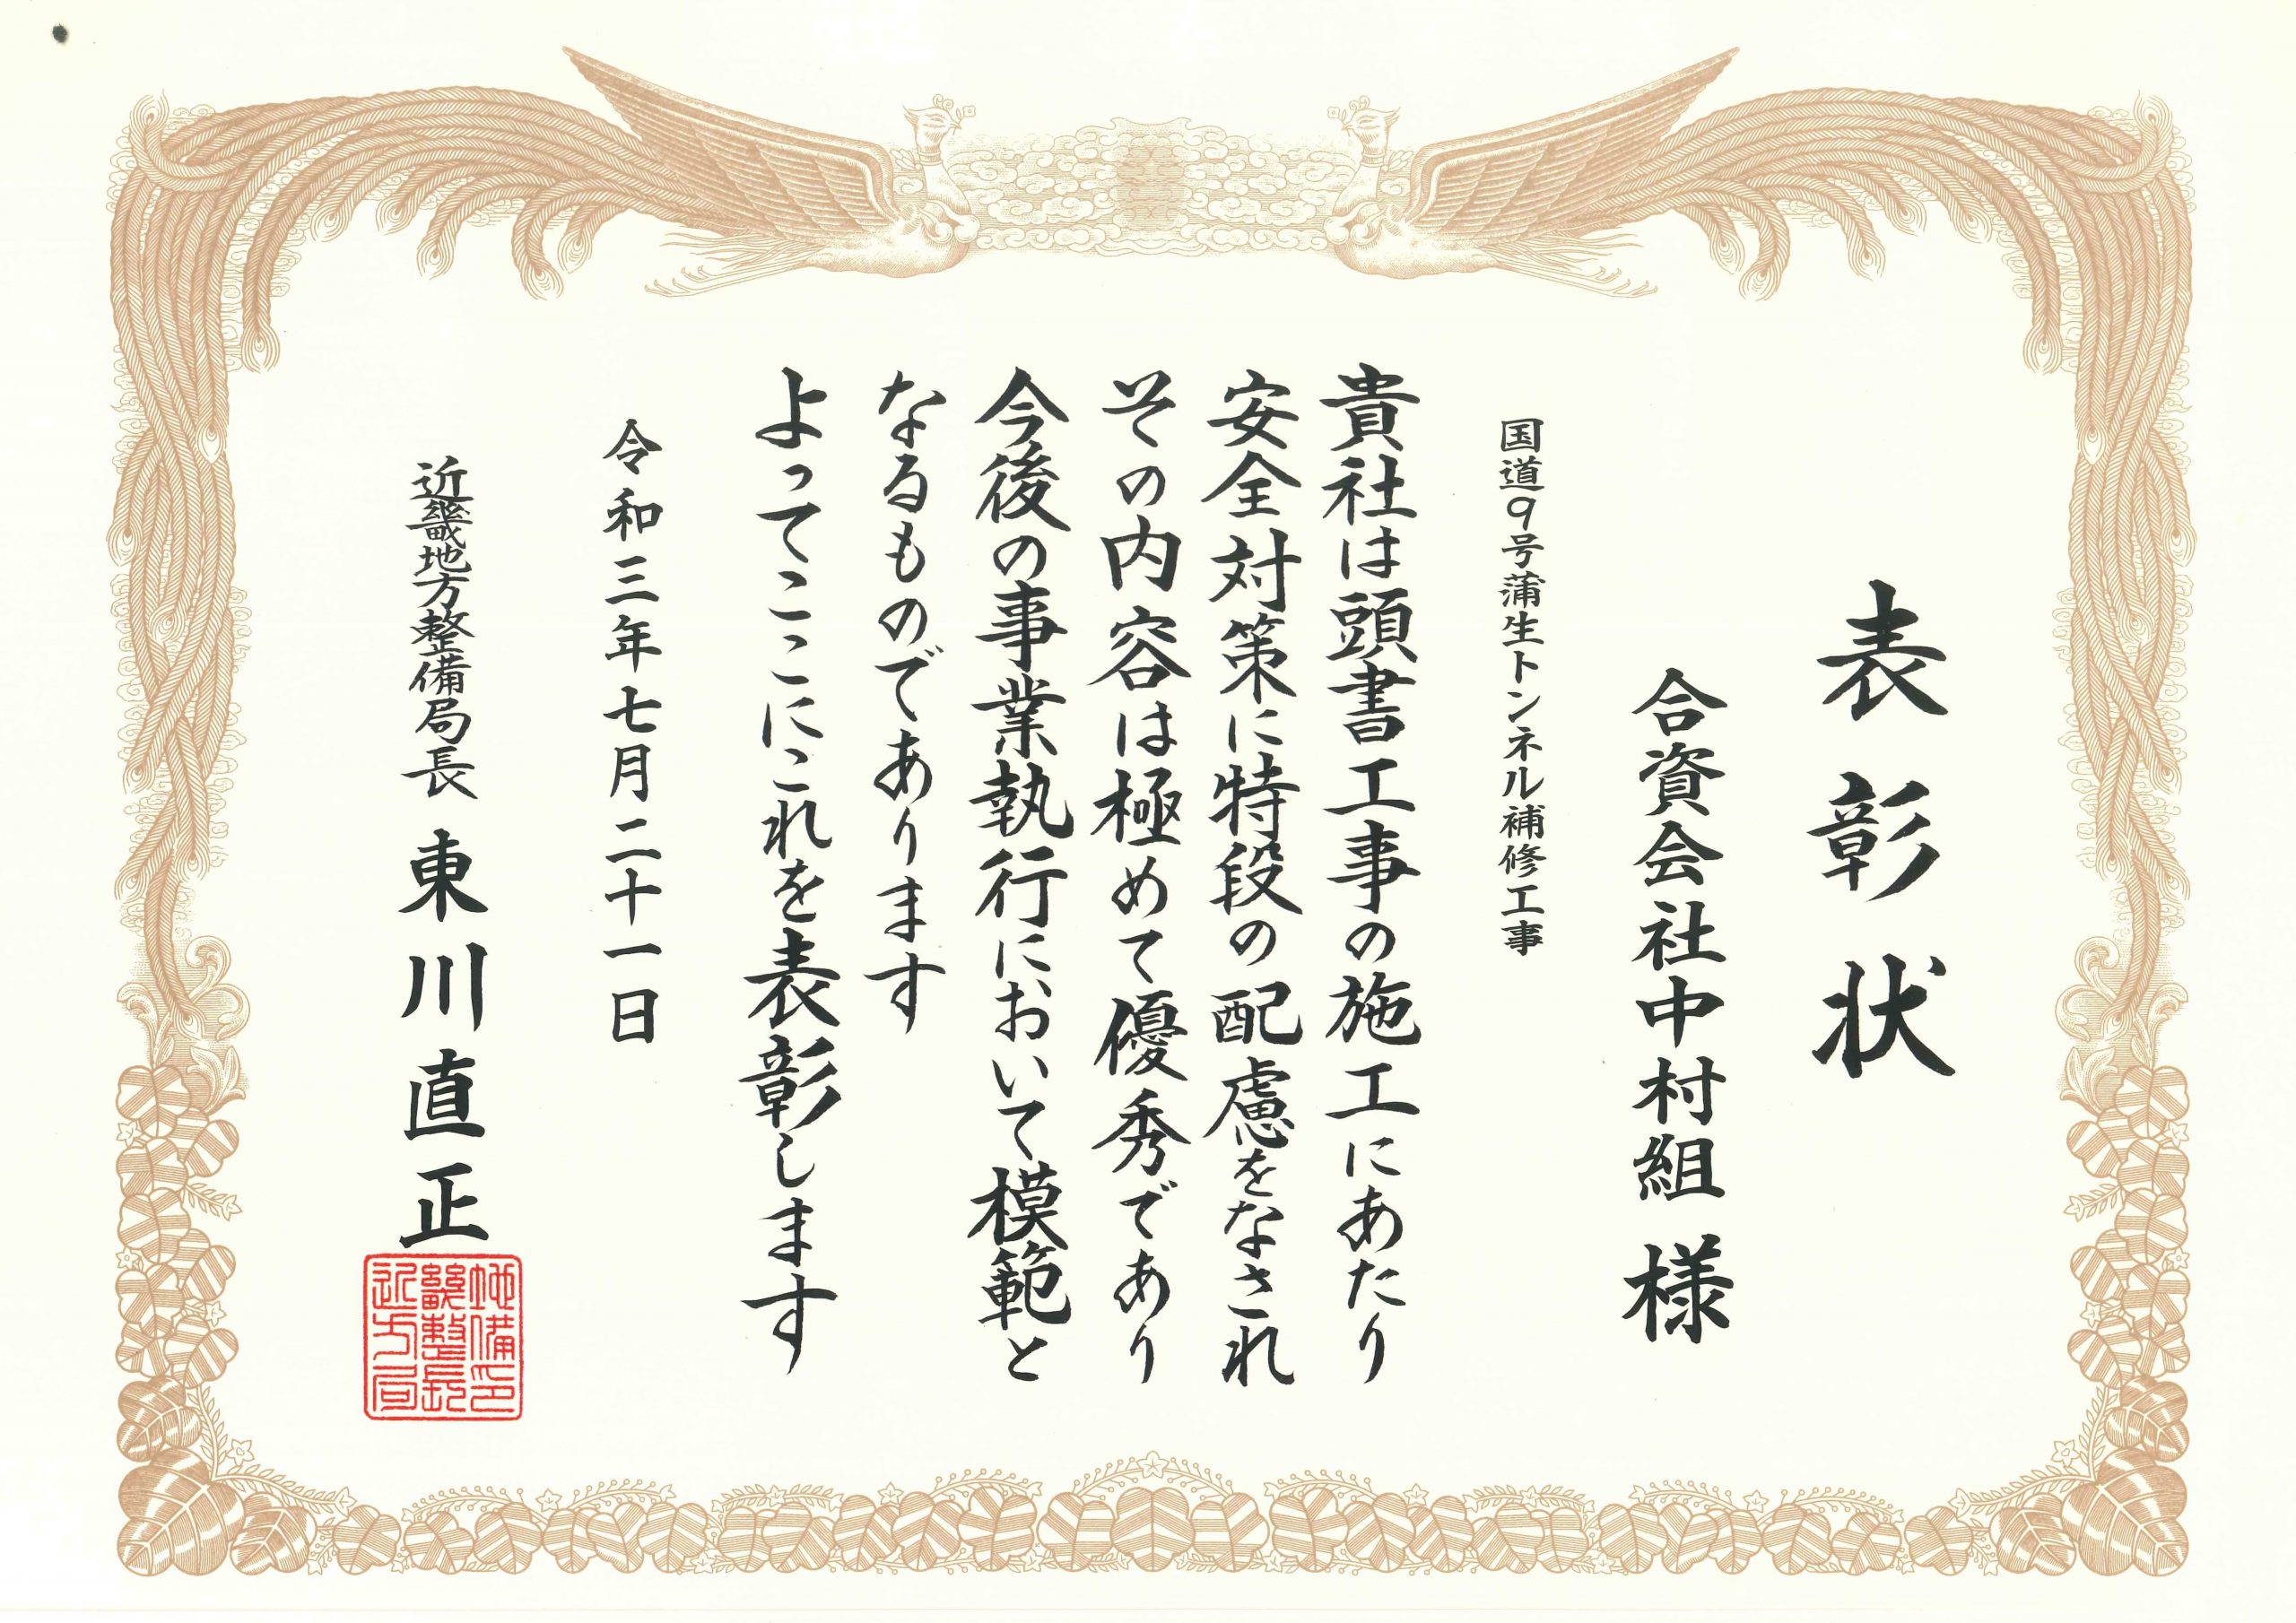 表彰状
合資会社中村組 様
国道9号蒲生トンネル補修工事
貴社は頭書工事の施工にあたり
安全対策に特段の配慮をなされ
その内容は極めて優秀であり
今後の事業執行において模範と
なるものであります
よってここにこれを表彰します
令和三年七月二十一日
近畿地方整備局長 東川直正
近畿地方整備局長印